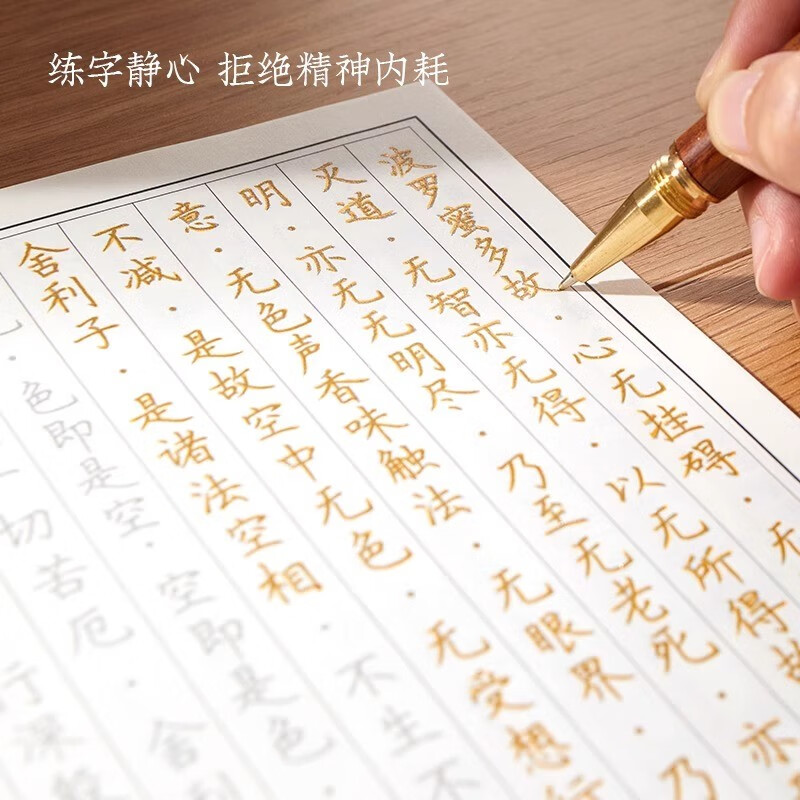 练字静心 拒绝精神内耗
波罗蜜多故·心无挂碍·无
灭道·无智亦无得·以无所得故
明·亦无无明尽·乃至无老死·亦
意·无色声香味触法·无眼界·乃
不减·是故空中无色·无受想行
舍利子·是诸法空相·不生不
·色即是空·空即是色·
切苦厄·舍利
行深般